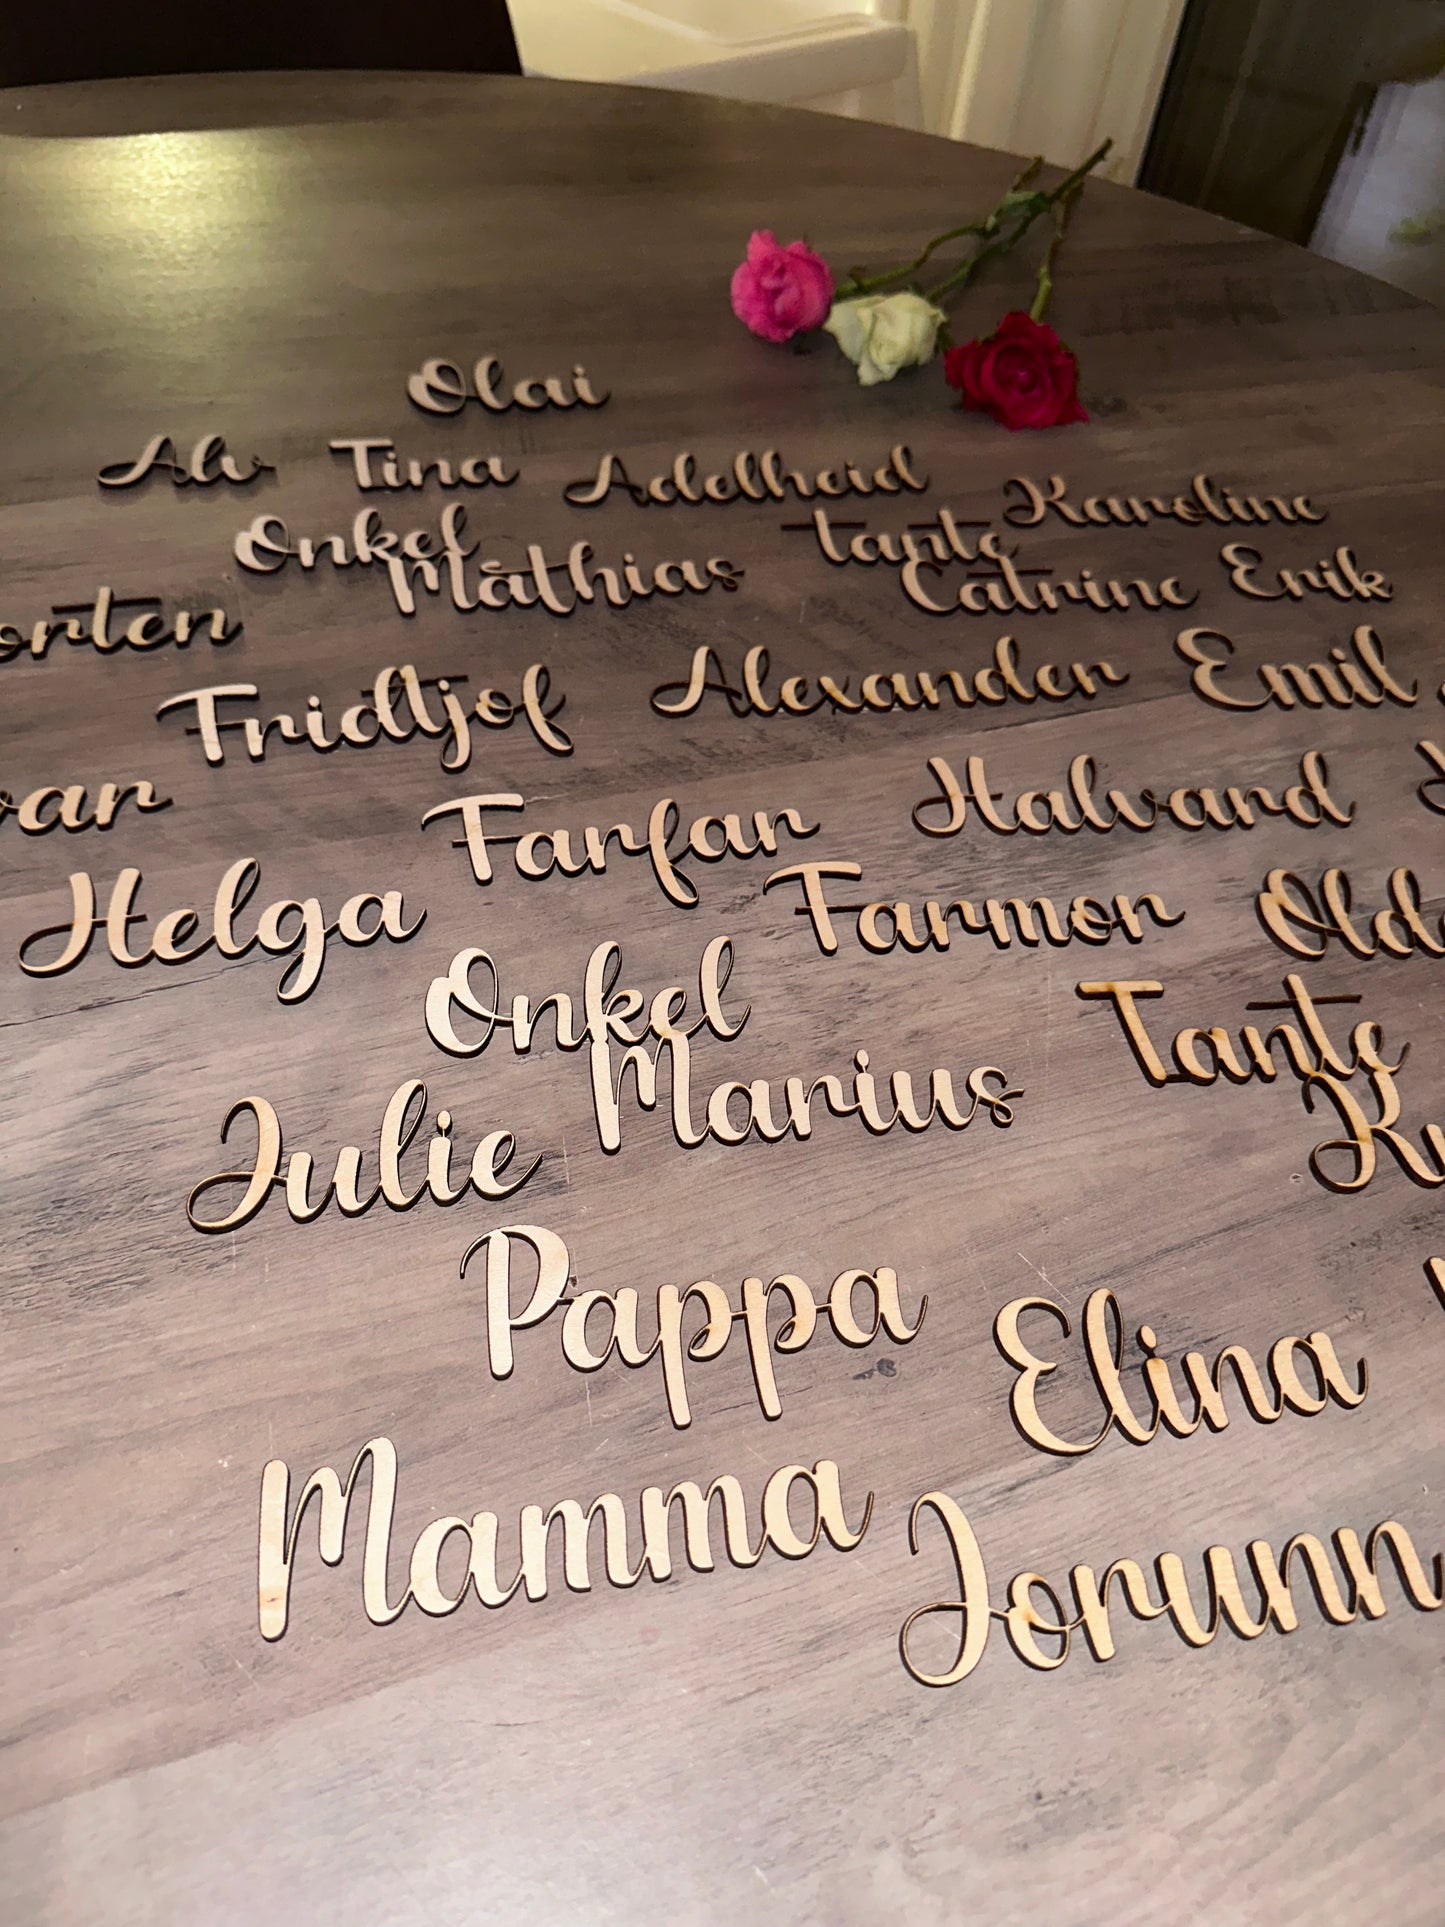 Olai
Alv Tina Adelheid Karoline
Onkel Mathias tante Catrine Erik
orten
Fridtjof Alexander Emil
var Farfar Halvard
Helga Farmor Old
Onkel Marius Tante
Julie
Pappa Elina
Mamma Jorunn